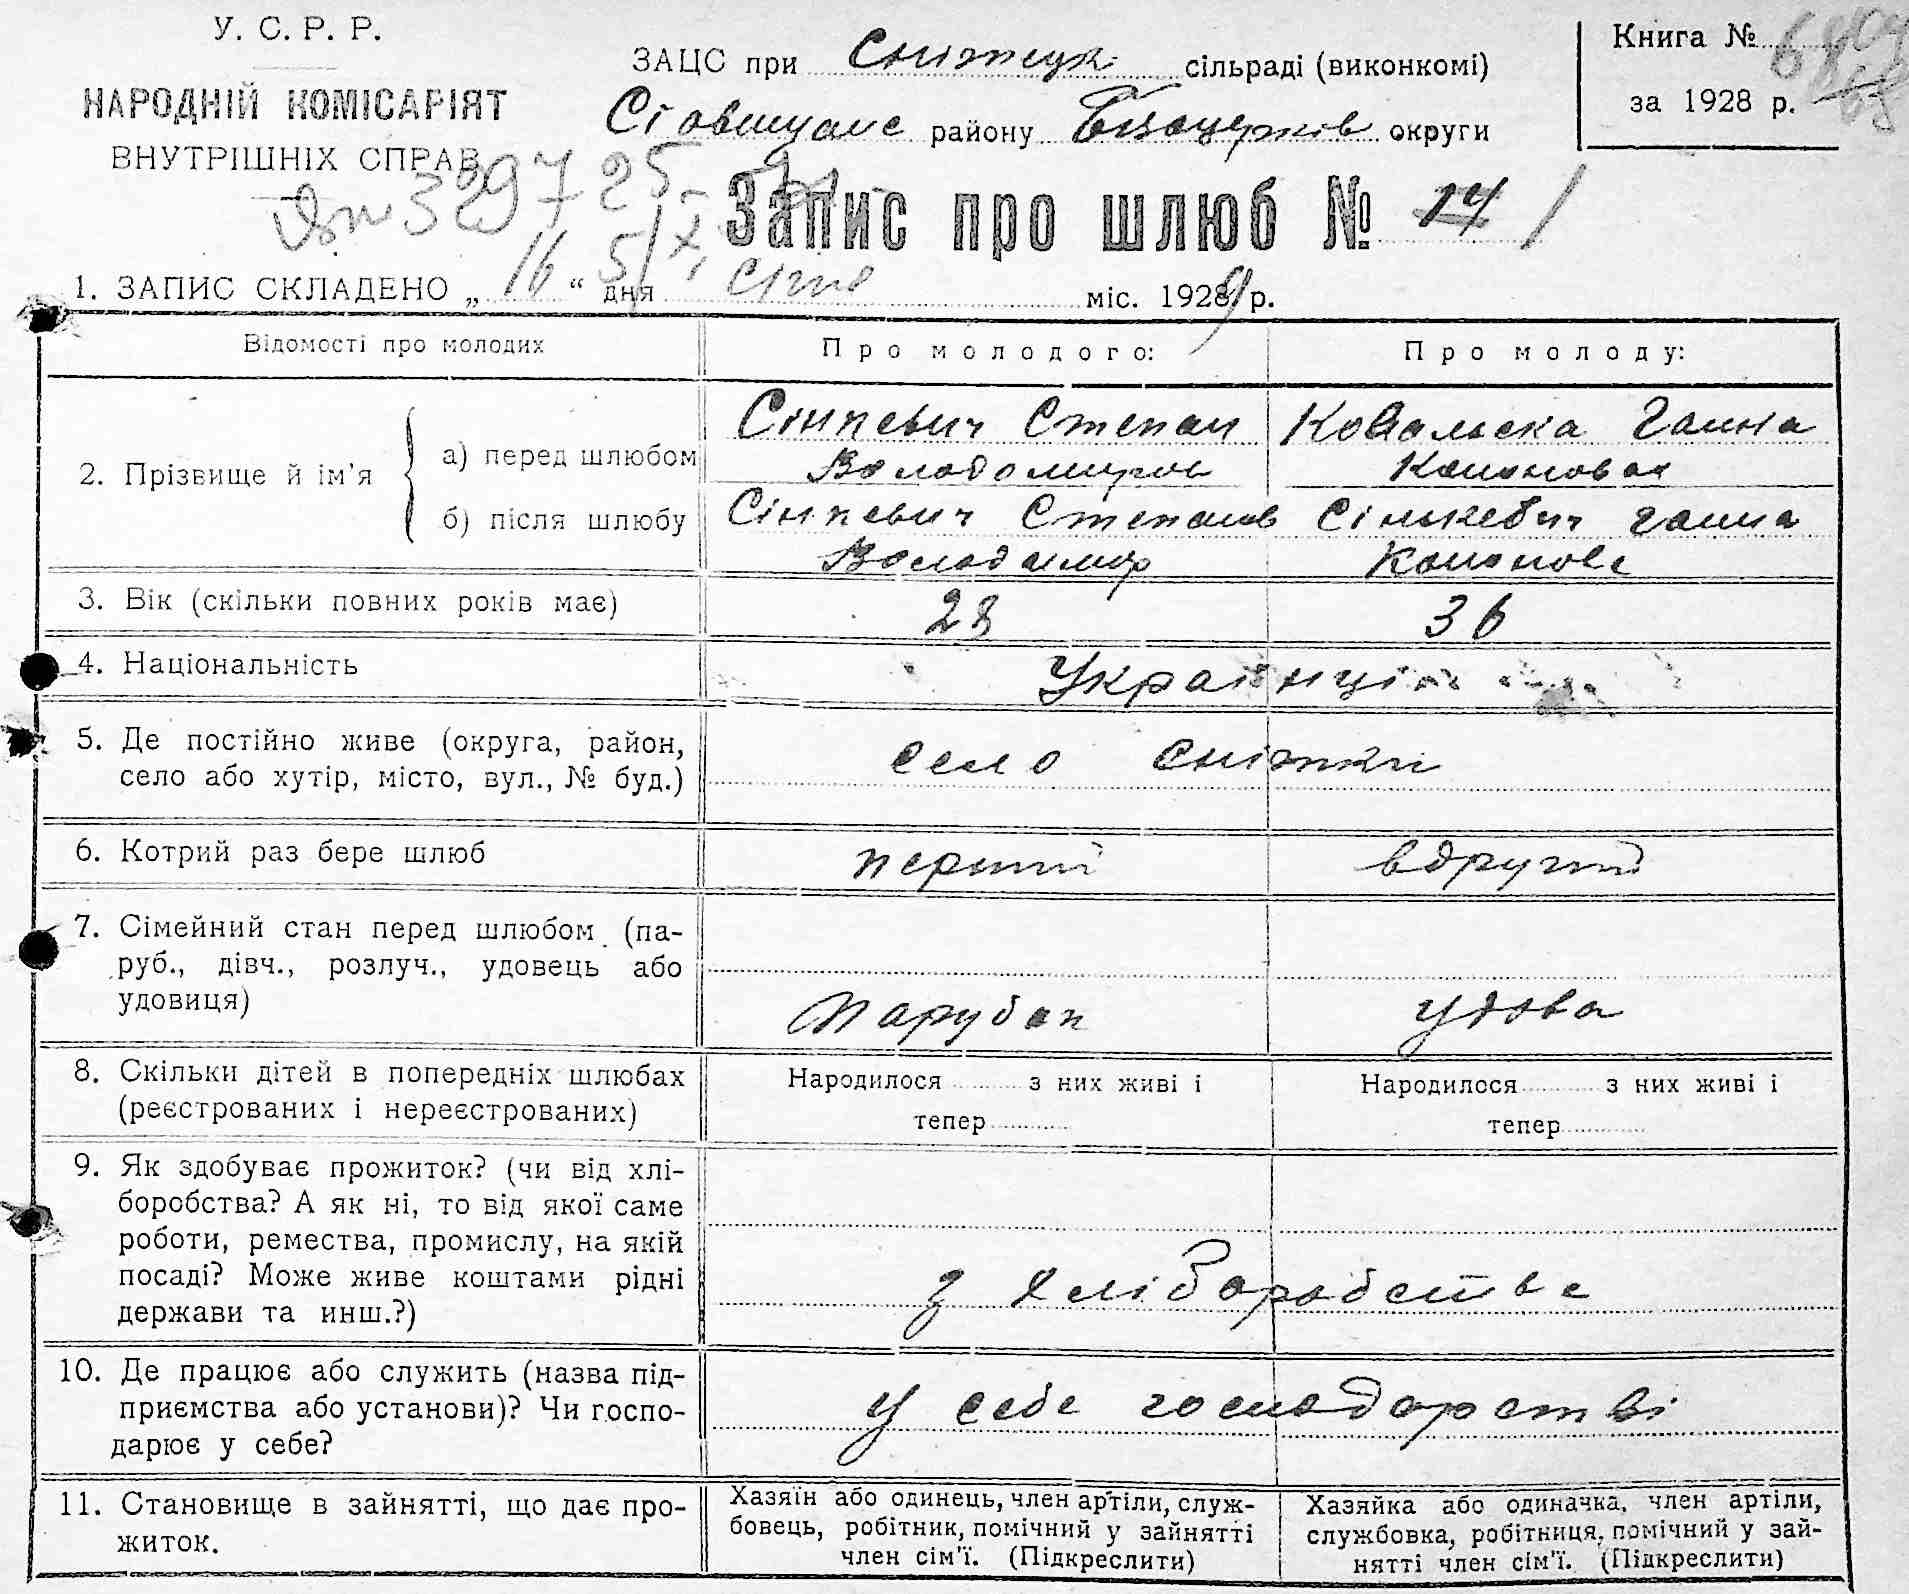 У. С. Р. Р.
НАРОДНІЙ КОМІСАРІЯТ
ВНУТРІШНІХ СПРАВ
ЗАЦС при Сніжецк. сільраді (виконкомі)
Ставищанс району Білоцерків округи
Книга №
за 1928 р.
329725
Запис про шлюб № 14 1
1. ЗАПИС СКЛАДЕНО „ 16 “ дня січня міс. 1929 р.
Відомості про молодих
Про молодого:
Про молоду:
2. Прізвище й ім'я
а) перед шлюбом
Сінкевич Степан
Володомиров
Ковальска Ганна
Кононовна
б) після шлюбу
Сінкевич Степанов
Володимир
Сінькевич Ганна
Кононовс
3. Вік (скільки повних років має)
28
36
4. Національність
Українці
5. Де постійно живе (округа, район,
село або хутір, місто, вул., № буд.)
село Сніжки
6. Котрий раз бере шлюб
перший
вдругий
7. Сімейний стан перед шлюбом (па-
руб., дівч., розлуч., удовець або
удовиця)
парубок
удова
8. Скільки дітей в попередніх шлюбах
(реєстрованих і нереєстрованих)
Народилося з них живі і
тепер
Народилося з них живі і
тепер
9. Як здобуває прожиток? (чи від хлі-
боробства? А як ні, то від якої саме
роботи, ремества, промислу, на якій
посаді? Може живе коштами рідні
держави та инш.?)
з хліборобства
10. Де працює або служить (назва під-
приємства або установи)? Чи госпо-
дарює у себе?
у себе господарстві
11. Становище в зайнятті, що дає про-
житок.
Хазяїн або одинець, член артіли, служ-
бовець, робітник, помічний у зайнятті
член сім'ї. (Підкреслити)
Хазяйка або одиначка, член артіли,
службовка, робітниця, помічний у зай-
нятті член сім'ї. (Підкреслити)